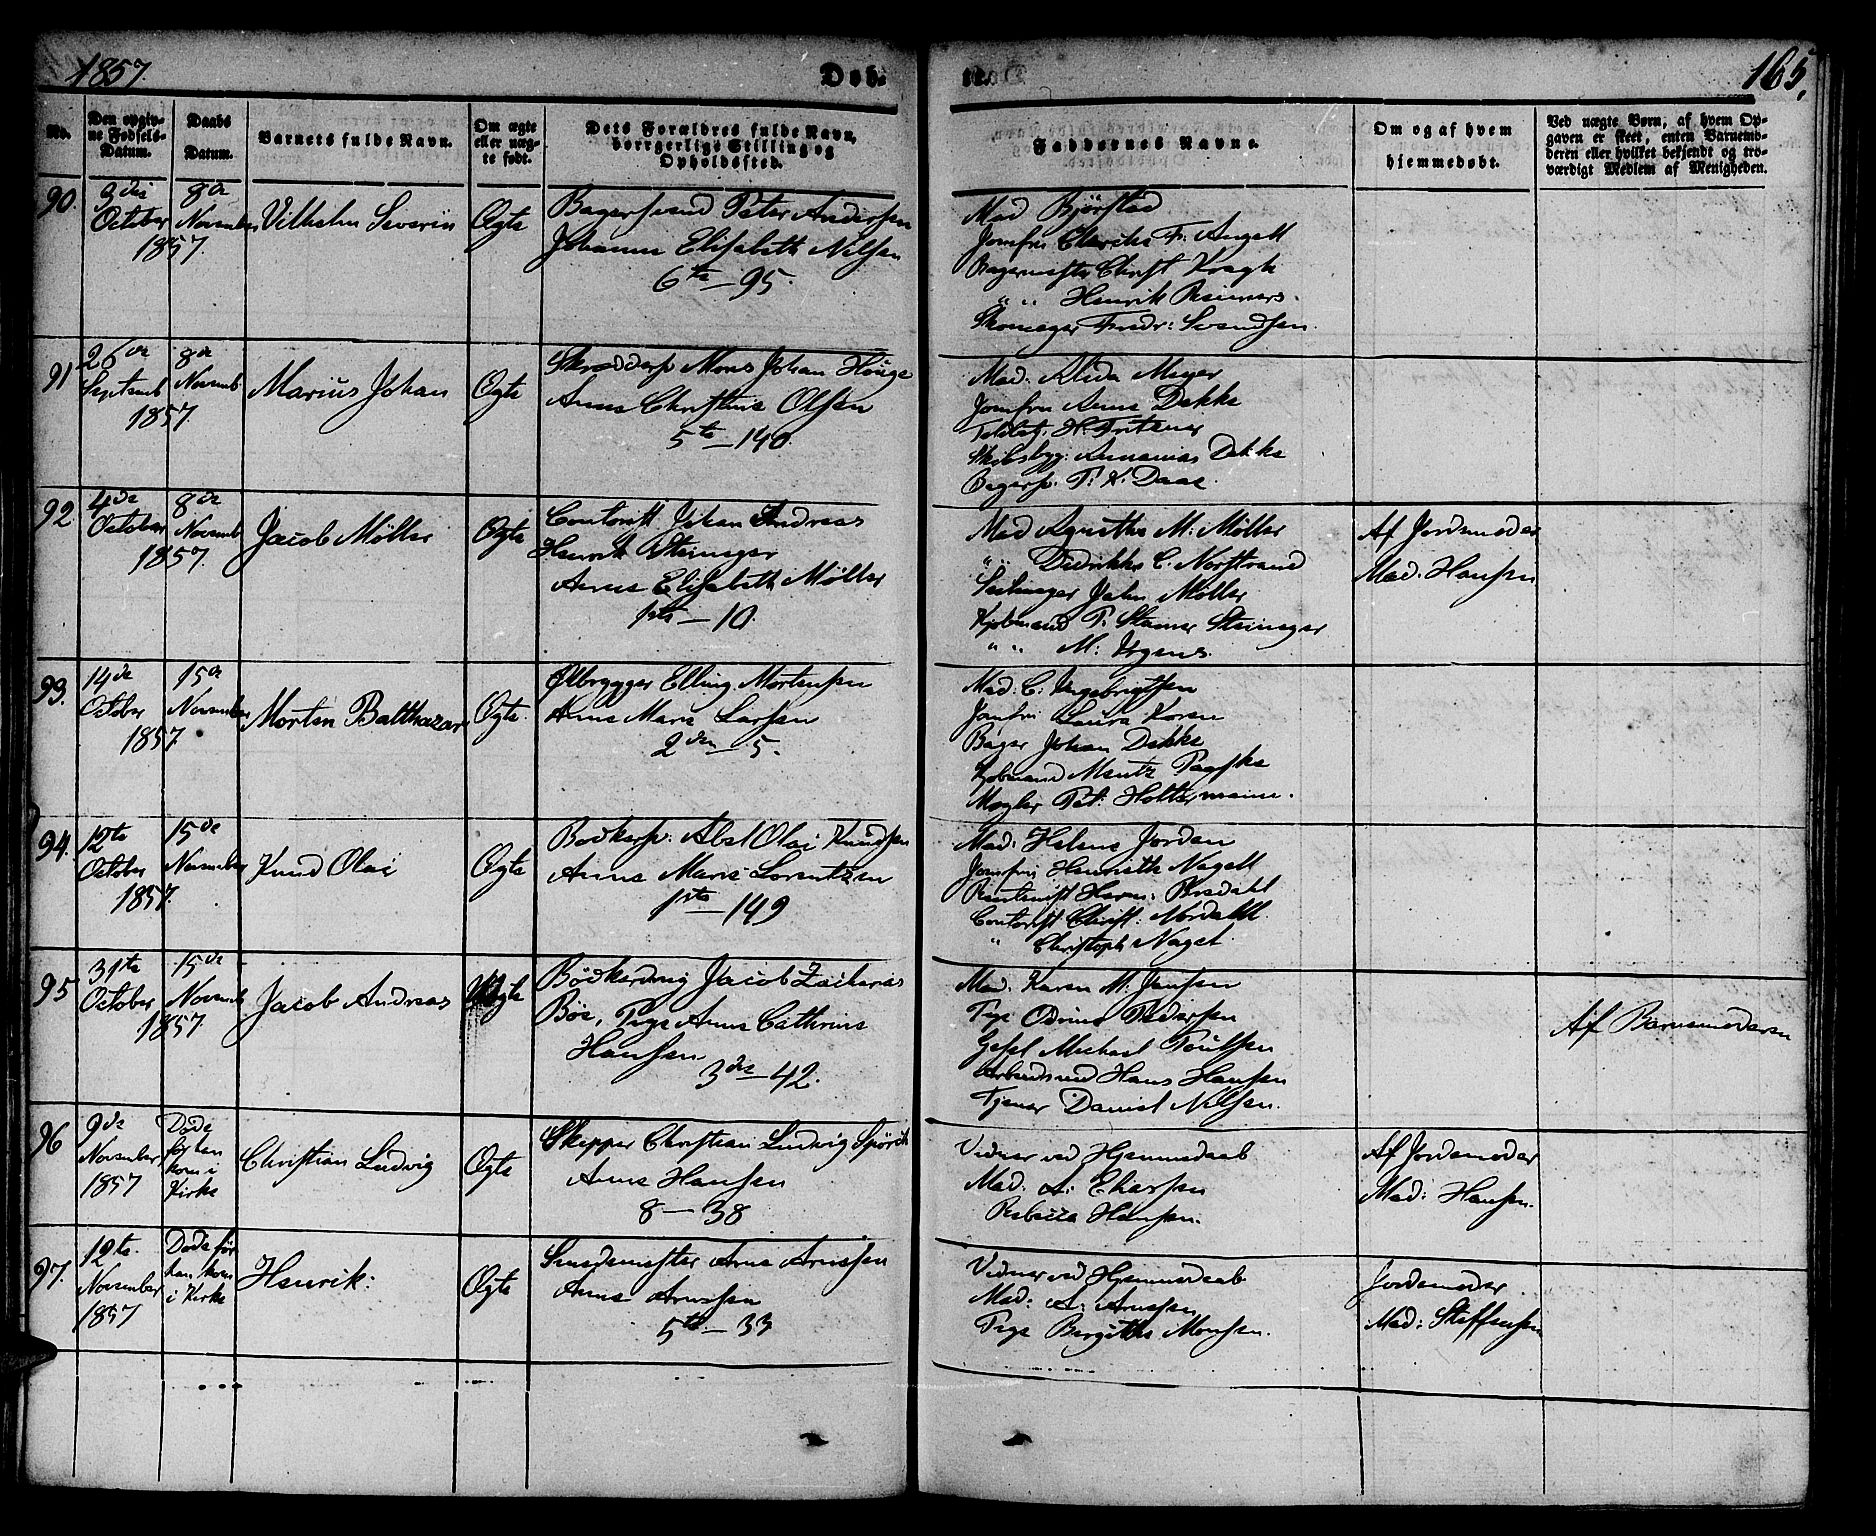 1857.
Døb-
te.
165.
No.
Den opgiv-
ne Fødsels-
Datum.
Daabs
Datum.
Barnets fulde Navn.
Om ægte
eller uæg-
te født.
Dets Forældres fulde Navn,
borgerlige Stilling og
Opholdssted.
Faddernes Navne.
Om og af hvem
hjemmedøbt.
Ved uægte Børn, af hvem Op-
gaven er skeet, enten Barnemo-
deren eller hvilket bekjendt og tro-
værdigt Medlem af Menigheden.
90.
9de
October
1857.
8de
November
Vilhelm Severin
Ægte
Bagersvend Peter Andersen
Johanne Elisabeth Nilsen
6te — 95.
Mad Bjørstad
Jomfru Fr: Angell
Bagermester Christ Kragh
" " Henrik Reimers.
Skomager Fredr: Svendsen.
91
26de
Septemb
1857.
8de
Novemb
Marius Johan
Ægte
Skræddersv Mons Johan Hauge
Anne Christine Olsen
5te — 140.
Mad: Alida Meyer
Jomfru Anne Dekke
H. Fritzner
Skibsbyg: Annanias Dekke
Bagersv: T. K. Daae.
92
4de
October
1857.
8de
Novemb
Jacob Møller
Ægte
Contorist Johan Andreas
Henrik Steineger
Anne Elisabeth Møller
1ste — 10.
Mad Agnethe M: Møller
" " Didrikke C. Norstrand
John Møller
Kjøbmand P: Stamer Steineger
" " M: Irgens.
Af Jordemoder
Mad. Hansen
93.
14de
October
1857.
15de
November
Morten Balthazar
Ægte.
Ølbrygger Elling Mortensen
Anne Marie Larsen
2den — 5.
Mad: C: Ingebrigtsen
Jomfru Laura Koren
Bager Johan Dekke
Kjøbmand Mentz Paaske
Mægler Pet: Holtermann.
94.
12te
October
1857.
15de
November
Knud Olai
Ægte
Bødkersv. Abel Olai Knudsen
Anne Marie Lorentzen
1ste — 149
Mad: Helene Jordan
Jomfru Henriette Nagell
Herm:
Contorist Christ: Nordahl.
" Christoph Nagel.
95
31te
October
1857.
15de
Novemb
Jacob Andreas
Uægte
Bødkerdreng Jacob Zacharias
Bøe, Pige Anne Cathrine
Hansen
3de — 42.
Mad. Karen M. Jansen
Pige Odine Pedersen
Gesel Michael Poulsen
Arbeidsmd Hans Hansen
Tjener Daniel Nilsen.
Af Barnemoderen
96
9de
November
1857
Døde
før han
kom i
Kirke
Christian Ludvig
Ægte
Skipper Christian Ludvig Spørck
Anne Hansen
8 — 38
Vidner ved Hjemmedaab
Mad. A: Ekersen
Rebecca Hansen.
Af Jordemoder
Mad: Hansen.
97.
12te.
November
1857
Døde før
han kom
i Kirke
Henrik:
Ægte
Smedemester Arne Arnesen
Anne Arnesen
5te — 33
Vidner ved Hjemmedaab
Mad: A: Arnesen
Pige Bergithe Monsen.
Jordemoder
Mad: Steffensen